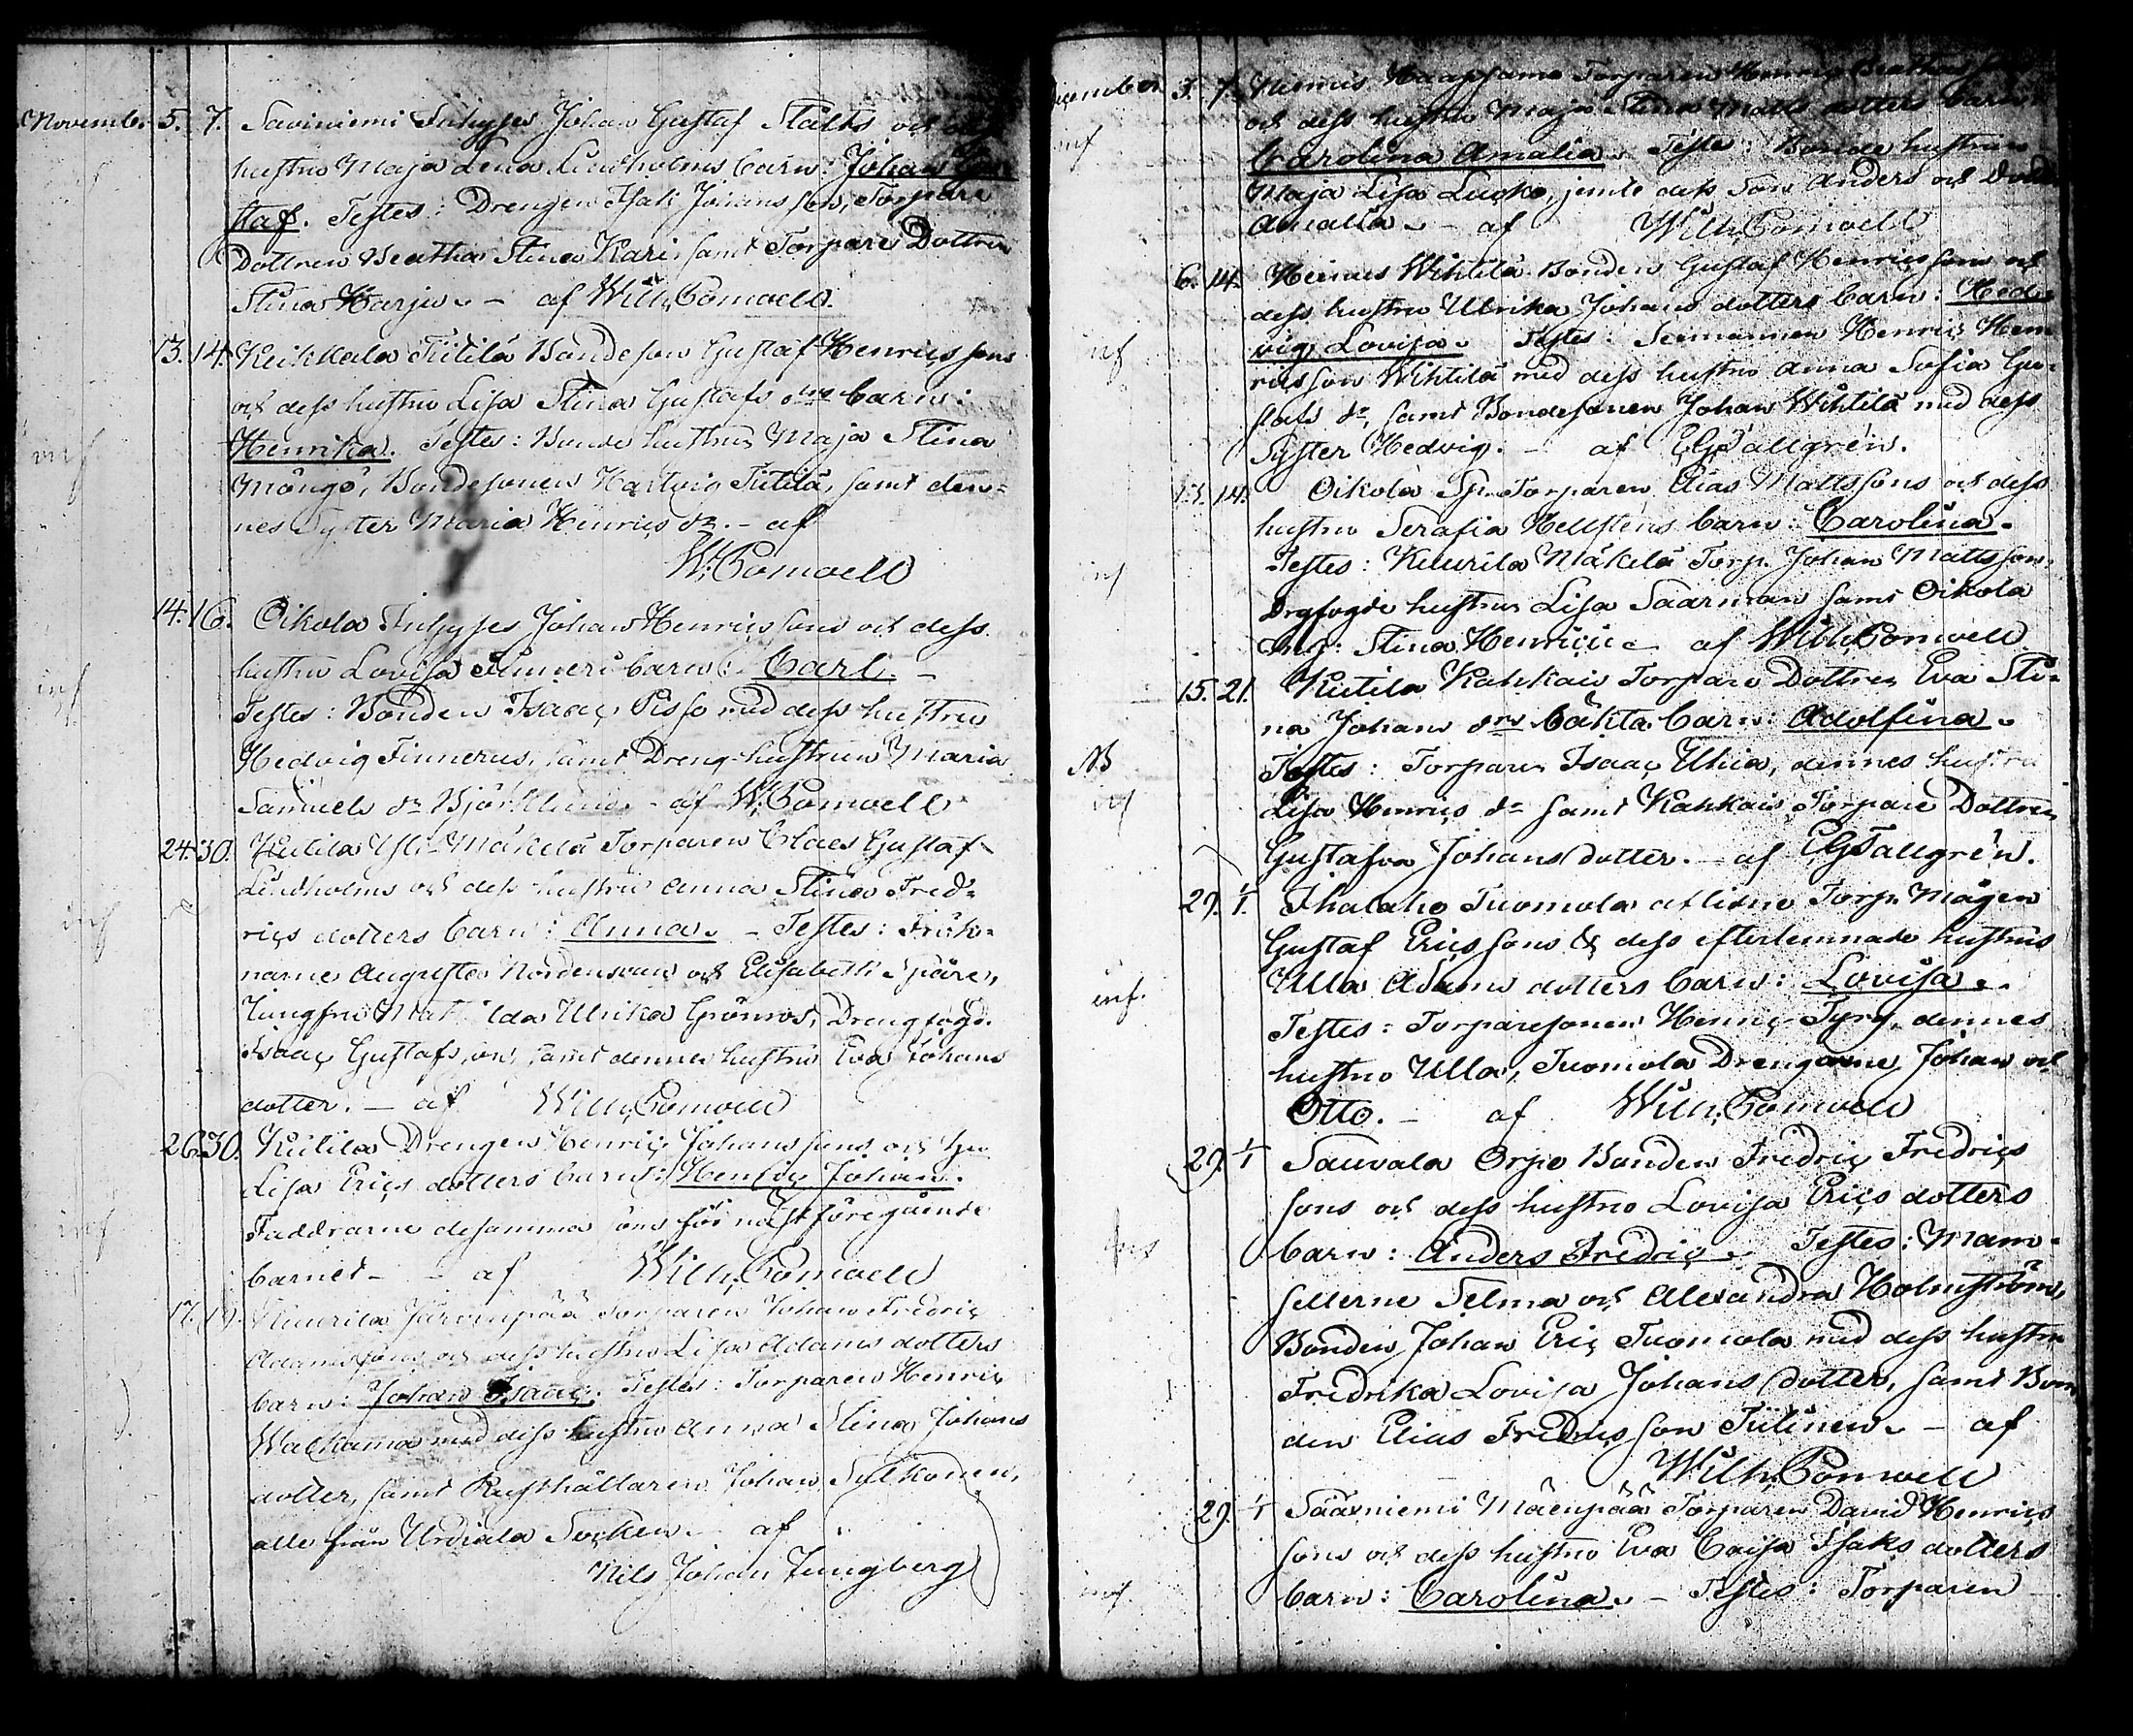 Novemb. 5. 7. Saviniemi Inhyses Johan Gustaf Stålts och dess
hustru Maja Lena Lindholms barn: Johan Gu-
staf. Testes: Drengen Isak Johansson, Torpare
Dottren Beatha Stina Kari, samt Torpare Dottren
Stina Harju. – af Wilh. Comvell.
inf 13. 14. Keikkala Tiitilä Bondeson Gustaf Henricssons
och dess hustru Lisa Stina Gustafs drs barn:
Henrika. Testes: Bonde hustrun Maja Stina
Mångs, Bondesonen Hartvig Tiitilä, samt den=
nes Syster Maria Henrics dr. – af
W. Comvell
inf 14. 16. Oikola Inhyses Johan Henricssons och dess
hustru Lovisa barn: Carl. –
Testes: Bonden Isaac Pisso med dess hustru
Hedvig Finnerus, samt Dreng hustrun Maria
Samuels dr Björklund. – af W. Comvell
inf 24. 30. Kutila Yli Mäkelä Torparen Claes Gustaf
Lindholms och dess hustru Anna Stina Fred=
rics dotters barn: Anna. – Testes: Frök=
narne Augusta Nordensvan och Elisabeth Spåre,
Jungfru Mathilda Ulrika Grönros, Drengfogd.
Isaac Gustafsson, samt dennes hustru Eva Johans
dotter. – af Wilh. Comvell
inf 26. 30. Kutila Drengen Henric Johanssons och hu.
Lisa Erics dotters barn: Henric Johan.
Faddrarne desamma som för nästföregående
barnet – – af Wilh. Comvell
17. 19. Kuurila Järvenpää Torparen Johan Fredric
Adamssons och dess hustru Lisa Adams dotters
barn: Johan Isaac. Testes: Torparen Henric
Walkama med dess hustru Anna Stina Johans
dotter, samt Rusthållaren Johan Sulkonen,
alle från Urdiala Socken. – af
Nils Johan Ljungberg
December 5. 7. Niemis Haapsamo Torparen Henric
inf och dess hustru Maja Stina Matts dotters barn
Carolina Amalia. Testes: Bonde hustrun
Maja Lisa Lucko, jemte dess Son Anders och Dotter
Amalia. – af Wilh. Comvell
6. 14. Heinus Wihtilä Bonden Gustaf Henricssons och
dess hustru Ulrika Johans dotters barn: Hed-
inf vig Lovisa. Testes: Henric Hen-
ricsson Wihtilä med dess hustru Anna Sofia Gu-
stafs dr, samt Bondesonen Johan Wihtilä med dess
Syster Hedvig. – af E G Tallgrén.
14. Oikola Sp. Torparen Elias Mattssons och dess
hustru Serafia Hellstens barn: Carolina.
inf Testes: Kuurila Mäkelä Torp. Johan Mattsson,
Drgfogde hustrun Lisa Saarman samt Oikola
Stina Henrici – af Wilh. Comvell
15. 21. Kutila Kahkais Torpare Dottren Eva Sti=
na Johans drs oäkta barn: Adolfina.
NB Testes: Torparen Isaac Uhia, dennes hustru
inf Lisa Henrics dr samt Kahkais Torpare Dottren
Gustafva Johans dotter. – af E G Tallgrén.
29. 1/1. Ihalaho Tuomola aflidne Torp. Mågen
Gustaf Ericssons & dess efterlemnade hustrus
inf. Ulla Adams dotters barn: Lovisa.
Testes: Torparesonen Henric Tyry, dennes
hustru Ulla, Tuomola Drengarne Johan och
Otto. – af Wilh. Comvell
29. 1/1 Sauvala Orpo Bonden Fredric Fredrics
sons och dess hustru Lovisa Erics dotters
ins barn: Anders Fredric. – Testes: Mam=
sellerne Selma och Alexandra Holmström,
Bonden Johan Eric Tuomola med dess hustru
Fredrika Lovisa Johans dotter, samt Bon
den Elias Fredricsson Tiilinen. – af
Wilh. Comvell
29. 1/1 Sääxniemi Mäenpää Torparen David Henrics
sons och dess hustru Eva Caisa Isaks dotters
inf. barn: Carolina. – Testes: Torparen